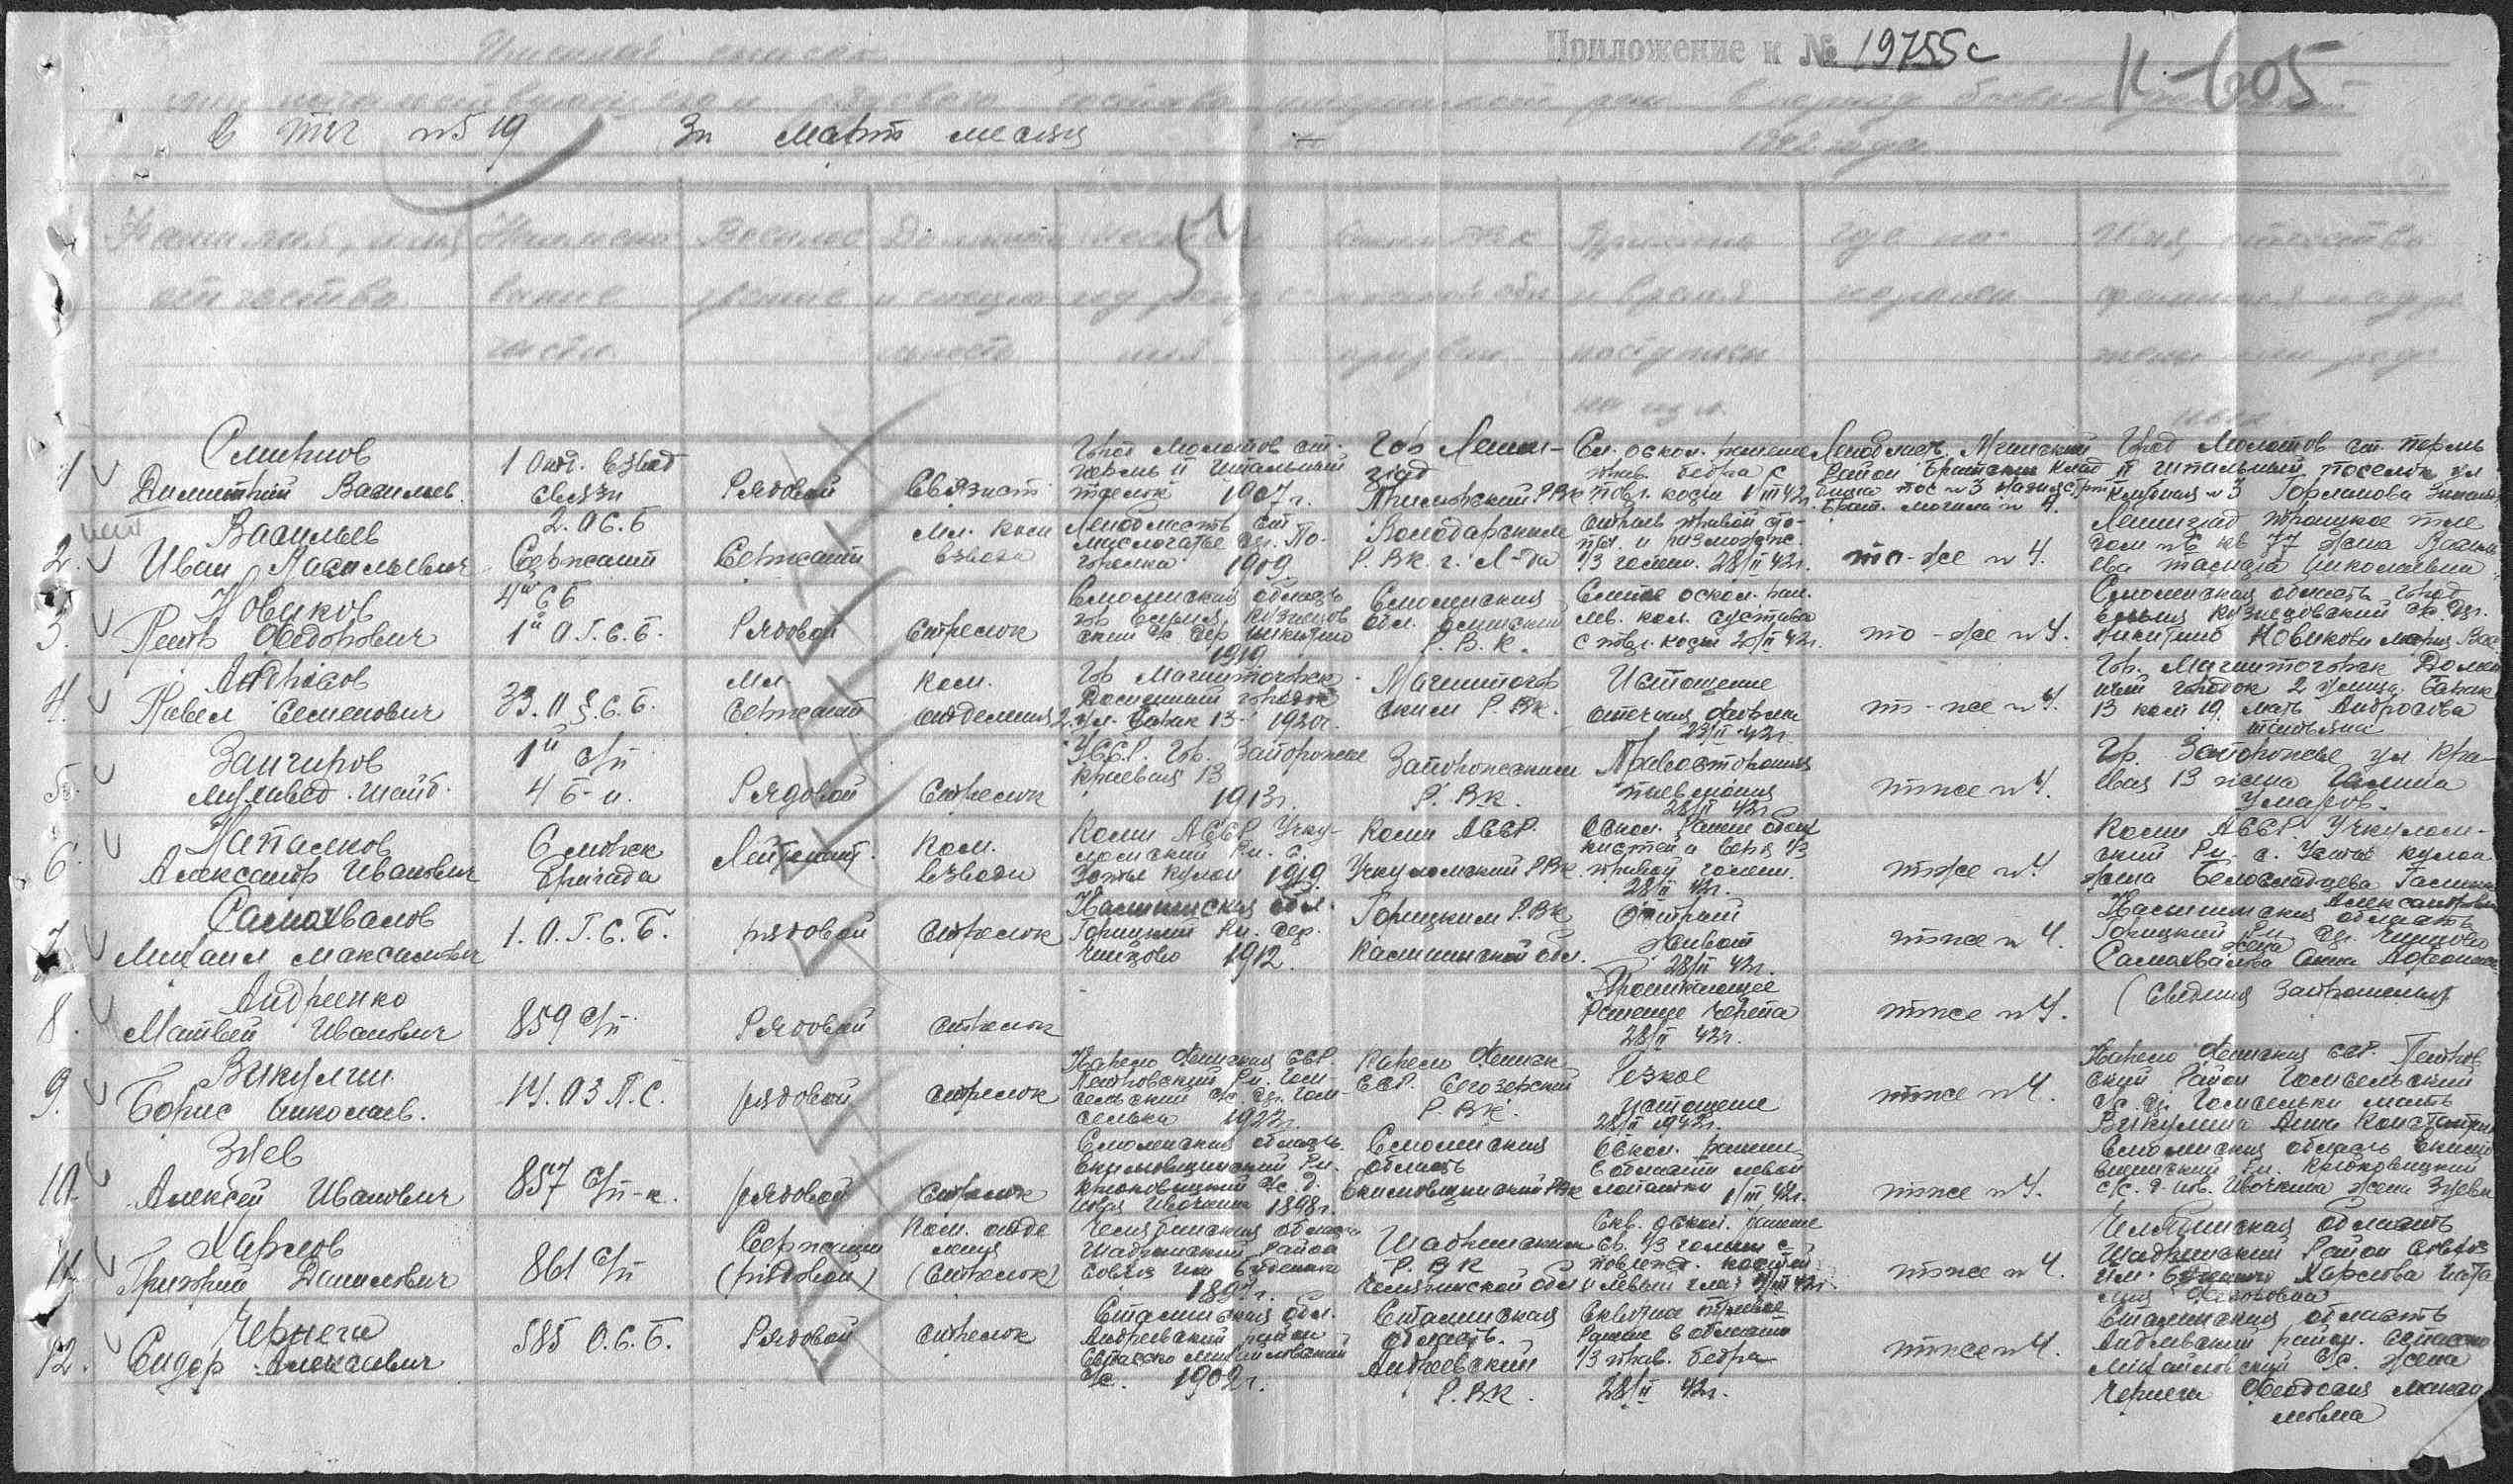 Именной список
Приложение к № 19755с
К-605
рядового состава
в ппг №519 За март месяц
1942 года
54
Фамилия, имя
отчество
Наимено
вание
части
Воинское
звание
Должность
и специ
альность
год рожде
ния
Каким РВК
призван
Причина
и время
поступлен
Где по-
хоронен
Имя, отчество
фамилия и адрес
жены или род-
1 Смирнов
Димитрий Васильев.
1 Отд. взвод
связи
Рядовой
Связист
Город Молотов ст.
Пермь II Шпальный
поселок 1907 г.
Гор Ленин-
град
Приморский РВК
Сл. оскол. ранение
прав. бедра с
повр. кости 1/III 42г.
Ленобласть Мгинский
Район Братское клад
Брат. могила №4.
Город Молотов ст. Пермь
II Шпальный поселок ул
Клубная №3 Горланова Зинаида
2. Васильев
Иван Васильевич
2. ОС.Б
Сержант
Сержант
Мл. Ком
взвода
Ленобласть ст.
горелка 1909
Володарским
Р.ВК. г. Л-да
1/3 голени. 28/II 42г.
то-же №4.
Ленинград Троицкое поле
дом №6 кв 77 жена Василь
ева Николаевна
3. Новиков
Петр Федорович
4й СБ
1й О.Г.С.Б.
Рядовой
Стрелок
Смоленский область
гор Ельня, Кузнецов
ский с/с дер. Никитино
1919
Смоленская
обл. Ельнинский
Р.В.К.
Слепое оскол. ран.
лев. кол. сустава
с повр. кости 28/II 42г.
то-же №4.
Смоленская область город
Ельня Кузнецовский с/с др.
Никитино Новикова Мария Вас
4. Андросов
Павел Семенович
33. О.С.Б.
Мл.
Сержант
Ком.
отделения
Гор Магнитогорск
Доменный городок
2 ул. Барак 13 1920г.
Магнитогор
ским Р.ВК.
Истощение
отечная форма
23/II 42г.
то-же №4.
Гор. Магнитогорск Домен
ный городок 2 улица Барак
13 ком 19. мать Андросова
татьяна
5. Зангиров
Мухамед. Шайб.
1й с/п
4 б-н.
Рядовой
Стрелок
УССР. Гор. Запорожье
Краевая 13
1913г.
Запорожским
Р.ВК.
Правосторонняя
пневмония
28/II 42г.
тоже №4.
Гр. Запорожье ул Кра-
вая 13 жена Галина
Умаров.
6. Напалков
Александр Иванович
6 морск
Бригада
Лейтенант.
Ком.
взвода
Коми АССР
Устькулом 1919.
Коми АССР.
Устькуломский РВК
Оскол. ранен обеих
кистей и верх 1/3
правой голени.
28/II 42г.
тоже №4
Коми АССР Устькулом-
ский Рн с. Усть кулом
жена Белоголадцева Галина
Александровна
7. Самохвалов
Михаил Максимович
1. О.Г.С.Б.
рядовой
Стрелок
Калининская обл.
Горицкий Рн. дер.
1912.
Горицким Р.ВК
Калининской обл.
Острый
живот
28/II 42г.
тоже №4.
Калининская область
Горицкий Рн др.
жена
Самохвалова Анна Афонасьев
8. Андриенко
Матвей Иванович
859 с/п
Рядовой
стрелок
Проникающее
Ранение черепа
28/II 42г.
тоже №4.
(Сведения запрошены)
9. Викулин
Борис Николаев.
14. ОЗ П.С.
рядовой
стрелок
Карело Финская ССР.
Петровский Рн. Гом
сельский с/с др. Гом-
селька 1922г.
Карело Финск
ССР. Сегозерский
Р.ВК.
Резкое
истощение
28/II 1942г.
тоже №4.
Карело Финская ССР. Петров
ский Район Гомсельский
с/с. др. Гомсельки мать
Викулина Анна Константин
10. Зуев
Алексей Иванович
857 с/п-к.
рядовой
Стрелок
Смоленская область
Екимовичский Рн.
Крюковицкий с/с. д.
Нов. Ивочкина 1898г.
Смоленская
область
Екимовичский РВК
Оскол. ранение
в области левой
лопатки 1/III 42г.
тоже №4.
Смоленская область Екимо
вичский Рн. Крюковицкий
с/с. д. Нов. Ивочкина жена Зуева
11. Харлов
Григорий Данилович
861 с/п
Сержант
(рядовой)
Ком. отде
ления
(Стрелок)
Челябинская область
Шадринский район
Совхоз им Буденного
1897г.
Шадринским
Р. ВК
Челябинской обл
Скв. оскол. ранение
ср. 1/3 голени с
поврежд. костей
и левый глаз 1/III 42г.
тоже №4.
Челябинская область
Шадринский Район Совхоз
им. Буденного Харлова Ната
лия
12. Чернега
Сидор Алексеевич
585 О.С.Б.
Рядовой
стрелок
Сталинская обл.
Андреевский район
Спасско Михайловский
с/с. 1902г.
Сталинская
область.
Андреевский
Р.ВК.
Сквозное пулевое
Ранение в области
1/3 прав. бедра
28/II 42г.
тоже №4.
Сталинская область
Андреевский район. Спасско
Михайловский с/с. жена
Чернега Феодосия